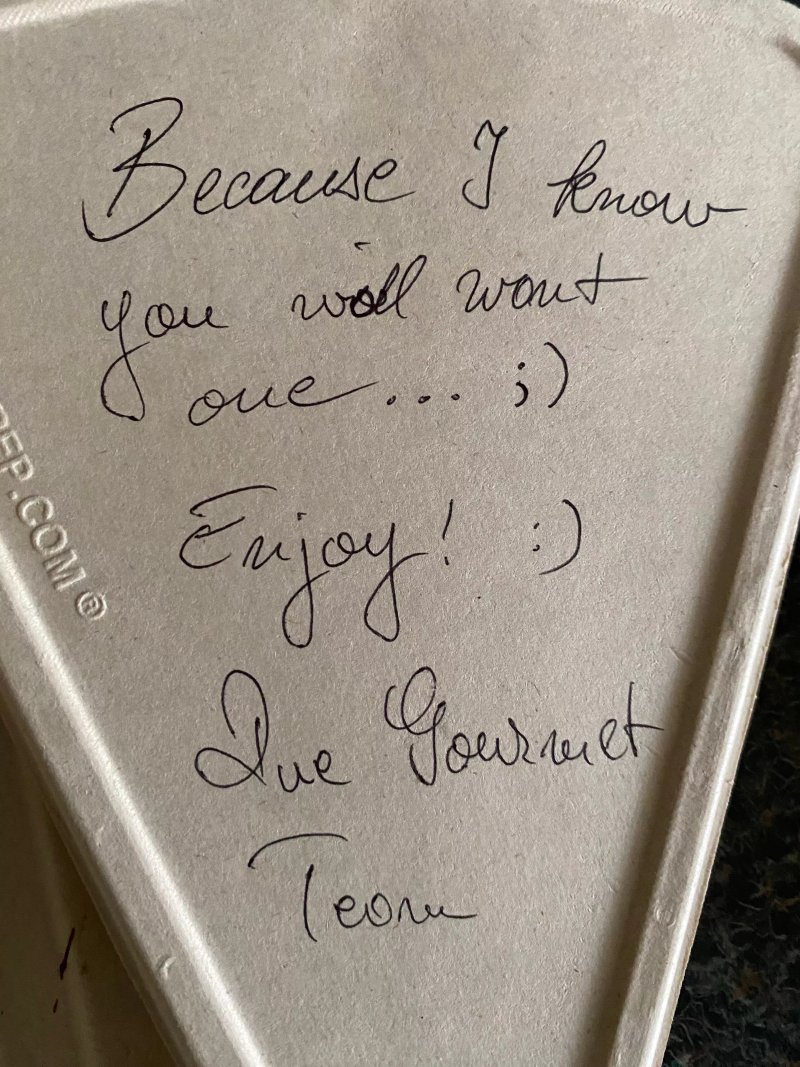 Because I know
you will want
one... ;)
Enjoy! :)
Due Gourmet
Team
.COM®